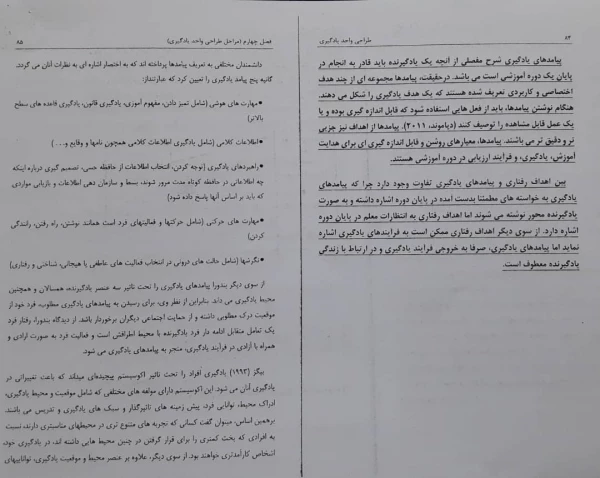 ۸۴
طراحی واحد یادگیری
پیامدهای یادگیری شرح مفصلی از آنچه یک یادگیرنده باید قادر به انجام در
پایان یک دوره آموزشی است می باشد. درحقیقت، پیامدها مجموعه ای از چند هدف
اختصاصی و کاربردی تعریف شده هستند که یک هدف یادگیری را شکل می دهند.
هنگام نوشتن پیامدها، باید از فعل هایی استفاده شود که قابل اندازه گیری بوده و یا
یک عمل قابل مشاهده را توصیف کنند (دیاموند، ۲۰۱۱). پیامدها از اهداف نیز جزیی
تر و دقیق تر می باشند. پیامدها، معیارهای روشن و قابل اندازه گیری ای برای هدایت
آموزش، یادگیری، و فرآیند ارزیابی در دوره آموزشی هستند.
بین اهداف رفتاری و پیامدهای یادگیری تفاوت وجود دارد چرا که پیامدهای
یادگیری به خواسته های مطمئنا بدست آمده در پایان دوره اشاره داشته و به صورت
یادگیرنده محور نوشته می شوند اما اهداف رفتاری به انتظارات معلم در پایان دوره
اشاره دارد. از سوی دیگر اهداف رفتاری ممکن است به فرایندهای یادگیری اشاره
نماید اما پیامدهای یادگیری، صرفا به خروجی فرایند یادگیری و در ارتباط با زندگی
یادگیرنده معطوف است.
فصل چهارم (مراحل طراحی واحد یادگیری)
۸۵
دانشمندان مختلفی به تعریف پیامدها پرداخته اند که به اختصار اشاره ای به نظرات آنان می گردد.
گانیه پنج پیامد یادگیری را تعیین کرد که عبارتنداز:
●مهارت های هوشی (شامل تمیز دادن، مفهوم آموزی، یادگیری قانون، یادگیری قاعده های سطح
بالاتر)
●اطلاعات کلامی (شامل یادگیری اطلاعات کلامی همچون نامها و وقایع و...)
●راهبردهای یادگیری (توجه کردن، انتخاب اطلاعات از حافظه حسی، تصمیم گیری درباره اینکه
چه اطلاعاتی در حافظه کوتاه مدت مرور شوند، بسط و سازمان دهی اطلاعات و بازیابی مواردی
که باید بر اساس آنها پاسخ داده شود)
●مهارت های حرکتی (شامل حرکتها و فعالیتهای فرد است همانند نوشتن، راه رفتن، رانندگی
کردن)
●نگرشها (شامل حالت های درونی در انتخاب فعالیت های عاطفی یا هیجانی، شناختی و رفتاری)
از سوی دیگر بندورا پیامدهای یادگیری را تحت تاثیر سه عنصر یادگیرنده، همسالان و همچنین
محیط یادگیری می داند. بنابراین از نظر وی، برای رسیدن به پیامدهای یادگیری مطلوب، فرد خود از
موقعیت درک مطلوبی داشته و از حمایت اجتماعی دیگران برخوردار باشد. از دیدگاه بندورا، رفتار فرد
یک تعامل متقابل ادامه دار فرد یادگیرنده با محیط اطرافش است و فعالیت فرد به صورت ارادی و
همراه با ارادی در فرآیند یادگیری، منجر به پیامدهای یادگیری می شود.
بیگز (۱۹۹۳) یادگیری افراد را تحت تاثیر اکوسیستم پیچیده‌ای میداند که باعث تغییراتی در
یادگیری آنان می شود. این اکوسیستم دارای مولفه های مختلفی که شامل موقعیت و محیط یادگیری،
ادراک محیط، توانایی فرد، پیش زمینه های تاثیرگذار و سبک های یادگیری و تدریس می باشند
برهمین اساس، میتوان گفت کسانی که تجربه های متنوع تری در محیطهای مناسبتری دارند، نسبت
به افرادی که بخت کمتری را برای قرار گرفتن در چنین محیط هایی داشته اند، در یادگیری خود،
اشخاص کارآمدتری خواهند بود. از سوی دیگر، علاوه بر عنصر محیط و موقعیت یادگیری، تواناییهای